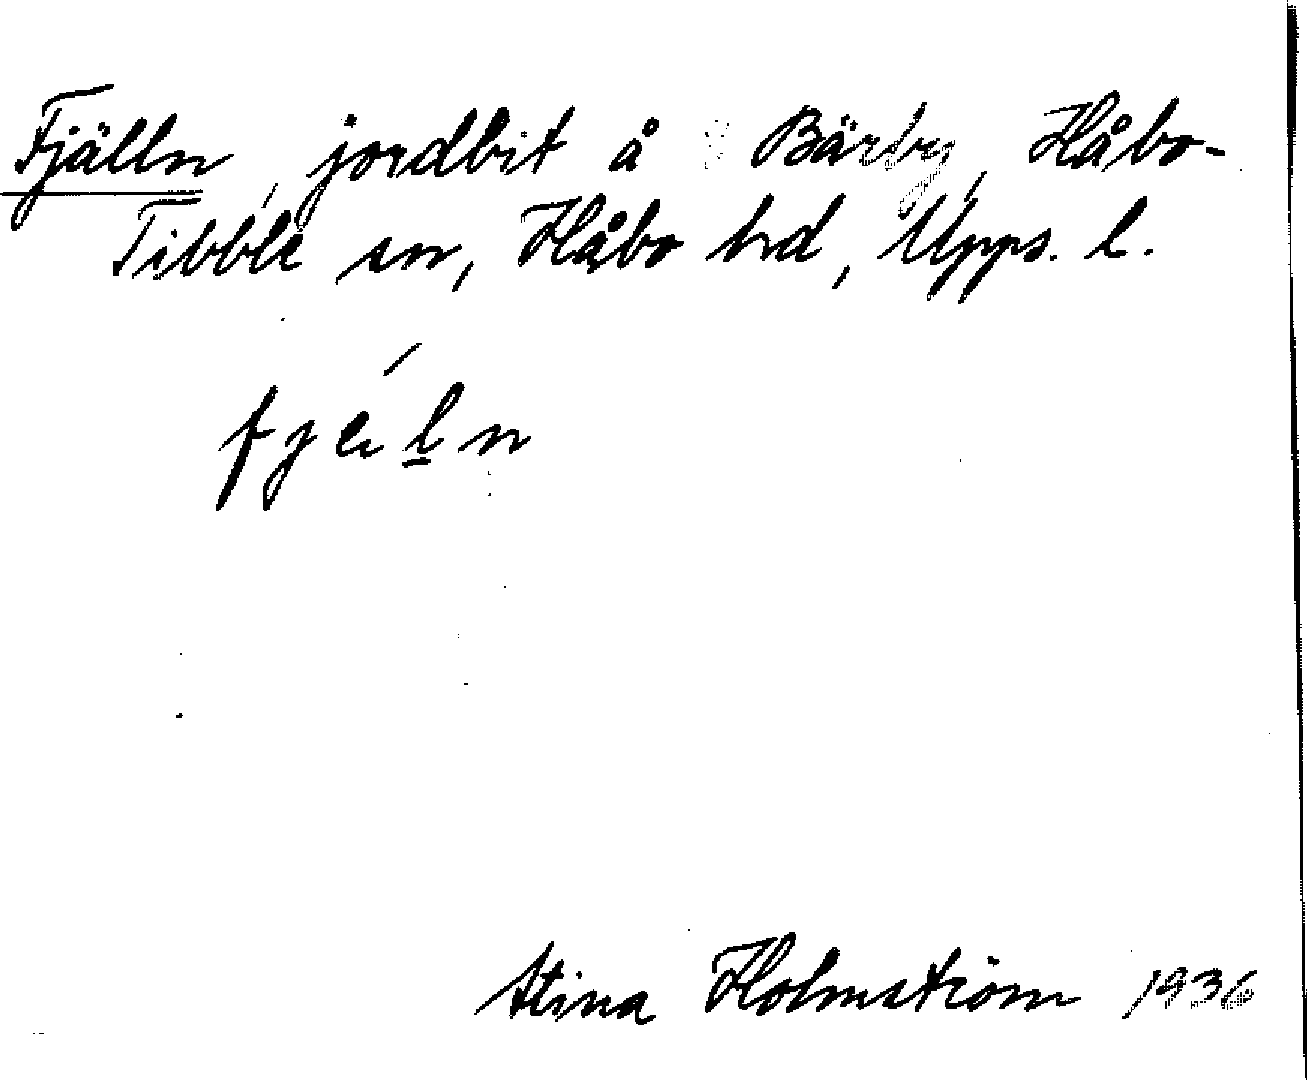 Fjälln, jordbit å Bärby, Håbo-
Tibble sn, Håbo hd, Upps. l.
Stina Holmström 1936